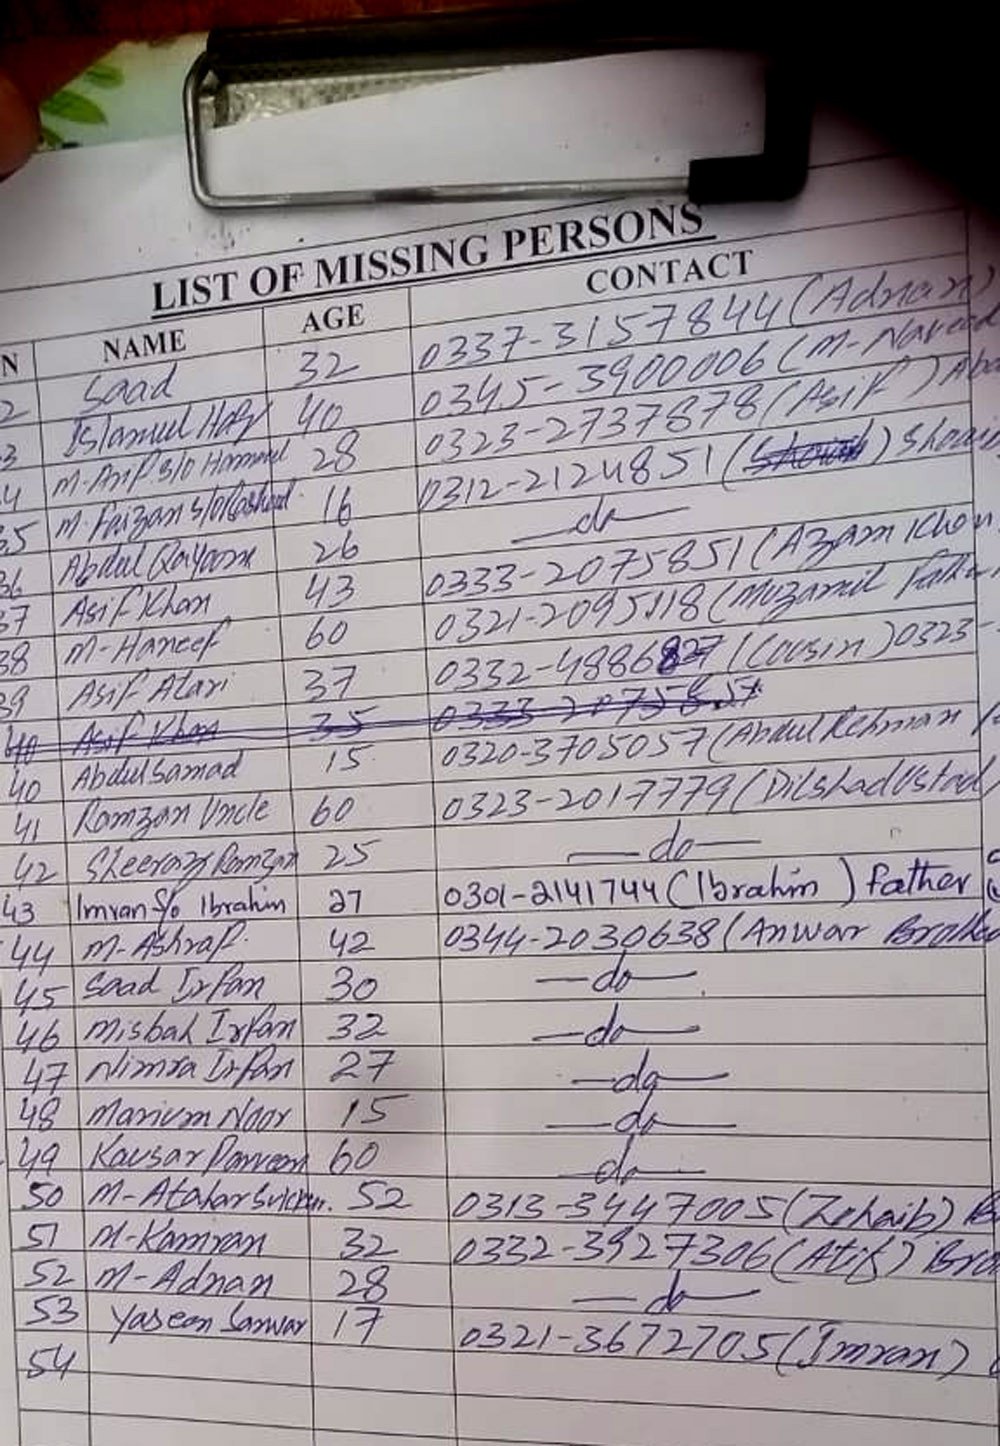 LIST OF MISSING PERSONS
N NAME AGE CONTACT
2 Saad 32 0337-3157844 (Adnan)
3 Islamul Haq 40 0345-3900006 (M-Naveed
4 M-Arif S/O Hameed 28 0323-2737878 (Asif)
35 M-Faizan S/O Rasheed 16 0312-2124851 (Shoaib) Shoaib
36 Abdul Qayoom 26 —do—
37 Asif Khan 43 0333-2075851 (Azam Khan
38 M-Haneef 60 0321-2095118 (Muzamil Father
39 Asif Atari 37 0332-4886827 (Cousin) 0323-
40 Asif Khan 35 0333-2075851
40 Abdul Samad 15 0320-3705057 (Abdul Rehman
41 Ramzan Uncle 60 0323-2017779 (Dilshad Ustad)
42 Sheeraz Ramzan 25 —do—
43 Imran S/o Ibrahim 27 0301-2141744 (Ibrahim) father
44 M-Ashraf. 42 0344-2030638 (Anwar Brother
45 Saad Irfan 30 —do—
46 Misbah Irfan 32 —do—
47 Nimra Irfan 27 —do—
48 Marium Noor 15 —do—
49 Kausar Parveen 60 —do—
50 M-Atahar 52 0313-3447005 (Zohaib) B
51 M-Kamran 32 0332-3927306 (Atif) Bro
52 M-Adnan 28 —do—
53 Yaseen Sarwar 17 0321-3672705 (Imran)
54